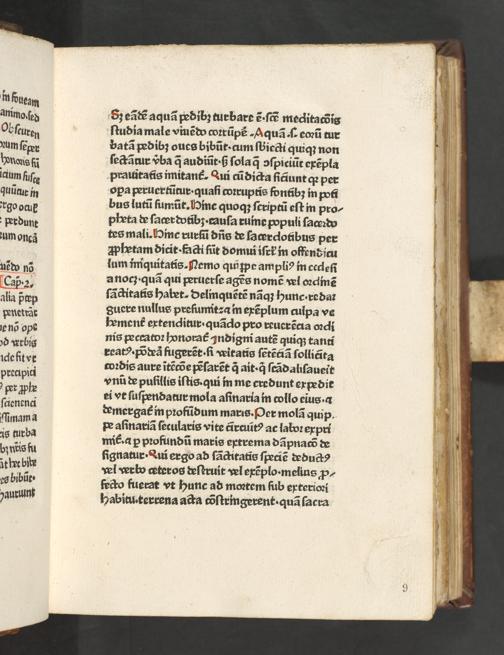 in foveam
animo. sed
Obscuren
honoris sũ
perdunt
Cap̃. 2.
Sʒ eãdẽ aquã pedibʒ turbare ẽ. scẽ meditacõis
studia male viuẽdo corrũpẽ. Aquã .s. eorũ tur
batã pedibʒ oues bibũt. cum sbiecti quiqʒ non
sectãtur v̾ba q̃ audiũt. sʒ sola q̃ ↄspiciũt exẽpla
prauitatis imitanẽ. Qui cũ dicta sciunt qʒ per
oꝑa peruertũtur. quasi corruptis fontibʒ in poti
bus lutũ sumũt. Hinc quoqʒ scriptũ est in pro⸗
pheta de sacerdotibʒ. causa ruine populi sacerdo
tes mali. Hinc rursũ dñs de sacerdotibus per
ꝓphetam dicit. Facti sũt domui isrł in offendicu
lum iniquitatis. Nemo quippe ampliꝰ in ecclesi
a nocʒ. quã qui peruerse agẽs nomẽ vel ordinẽ
sãctitatis habet. Delinquẽtẽ nãqʒ hunc. redar
guere nullus presumit: ⁊ in exẽplum culpa ve
hemenẽ extenditur. quãdo pro reuerẽcia ordi
nis peccator honorat̾. Indigni autẽ quiqʒ tanti
reatꝰ. põdẽa fugerẽt. si v̾itatis sẽtẽciã sollicita
cordis aure itẽcõe pẽsarẽt q̃ ait. q̃ scãdalisauẽit
vnũ de pusillis istis. qui in me credunt expedit
ei vt suspendatur mola asinaria in collo eius. ⁊
demergat̾ in profũdum maris. Per molã quip⸗
pe asinariã secularis vite circuitꝰ ac labor expri
mit̾. ⁊ ꝑ profundũ maris extrema dãpnacõ de
signatur. Qui ergo ad sãctitatis speciẽ deductꝰ
vel verbo ceteros destruit vel exẽplo. melius ꝓ⸗
fecto fuerat vt hunc ad mortem sub exteriori
habitu. terrena acta cõstringerent. quã sacra
9